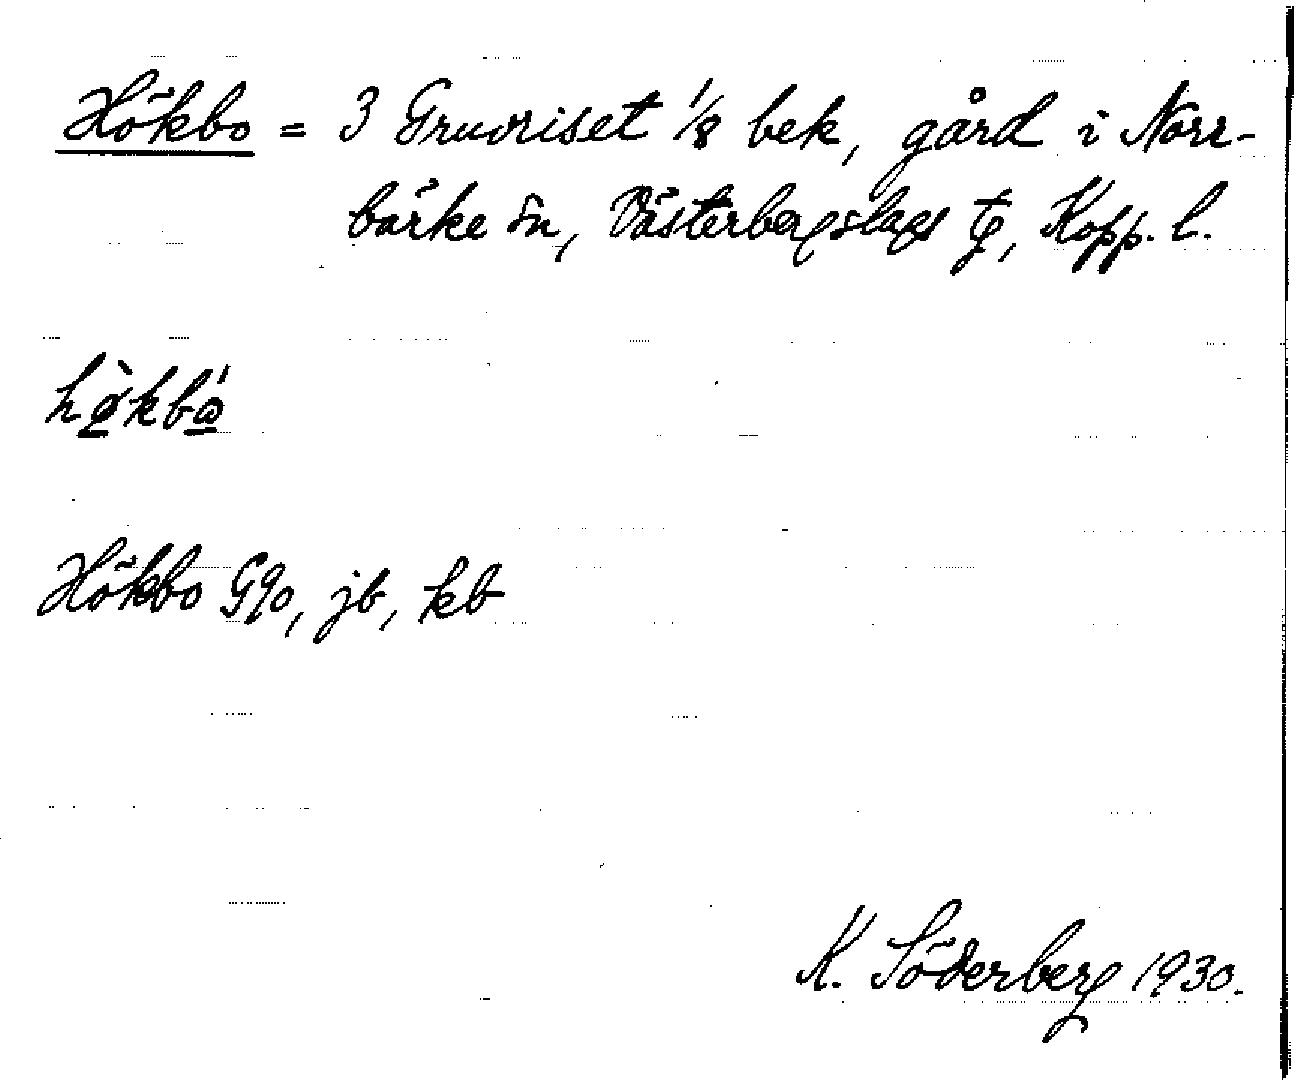 Hökbo = 3 Gruvriset 1/8 bek, gård i Norr-
bärke sn, Västerbergslags tg, Kopp. l.
hø̀kbǻ
Hökbo Gqo, jb, kb
K. Söderberg 1930.